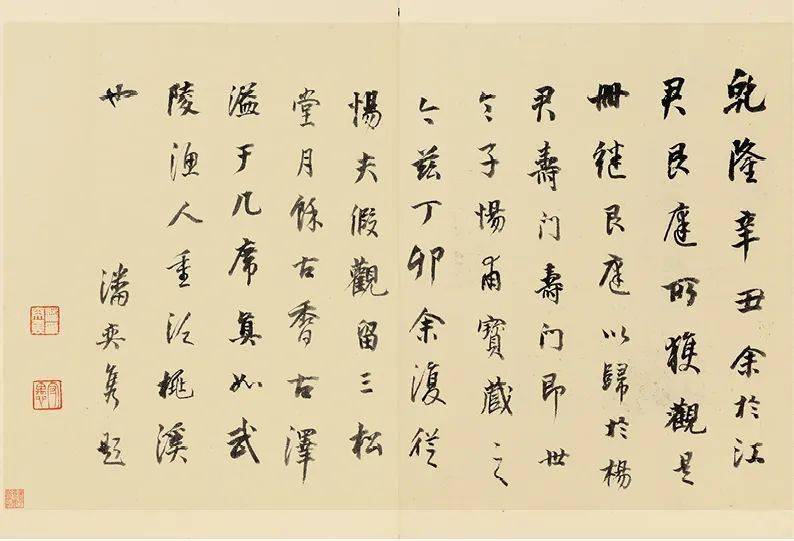 乾隆辛丑余於江
君艮庭所獲觀是
冊継艮庭以歸於楊
君壽门壽门即世
令子惕甫寶蔵之
今兹丁卯余復從
惕夫假觀留三松
堂月餘古香古澤
溢于几席真如武
陵漁人重泛桃溪
也 潘奕雋題